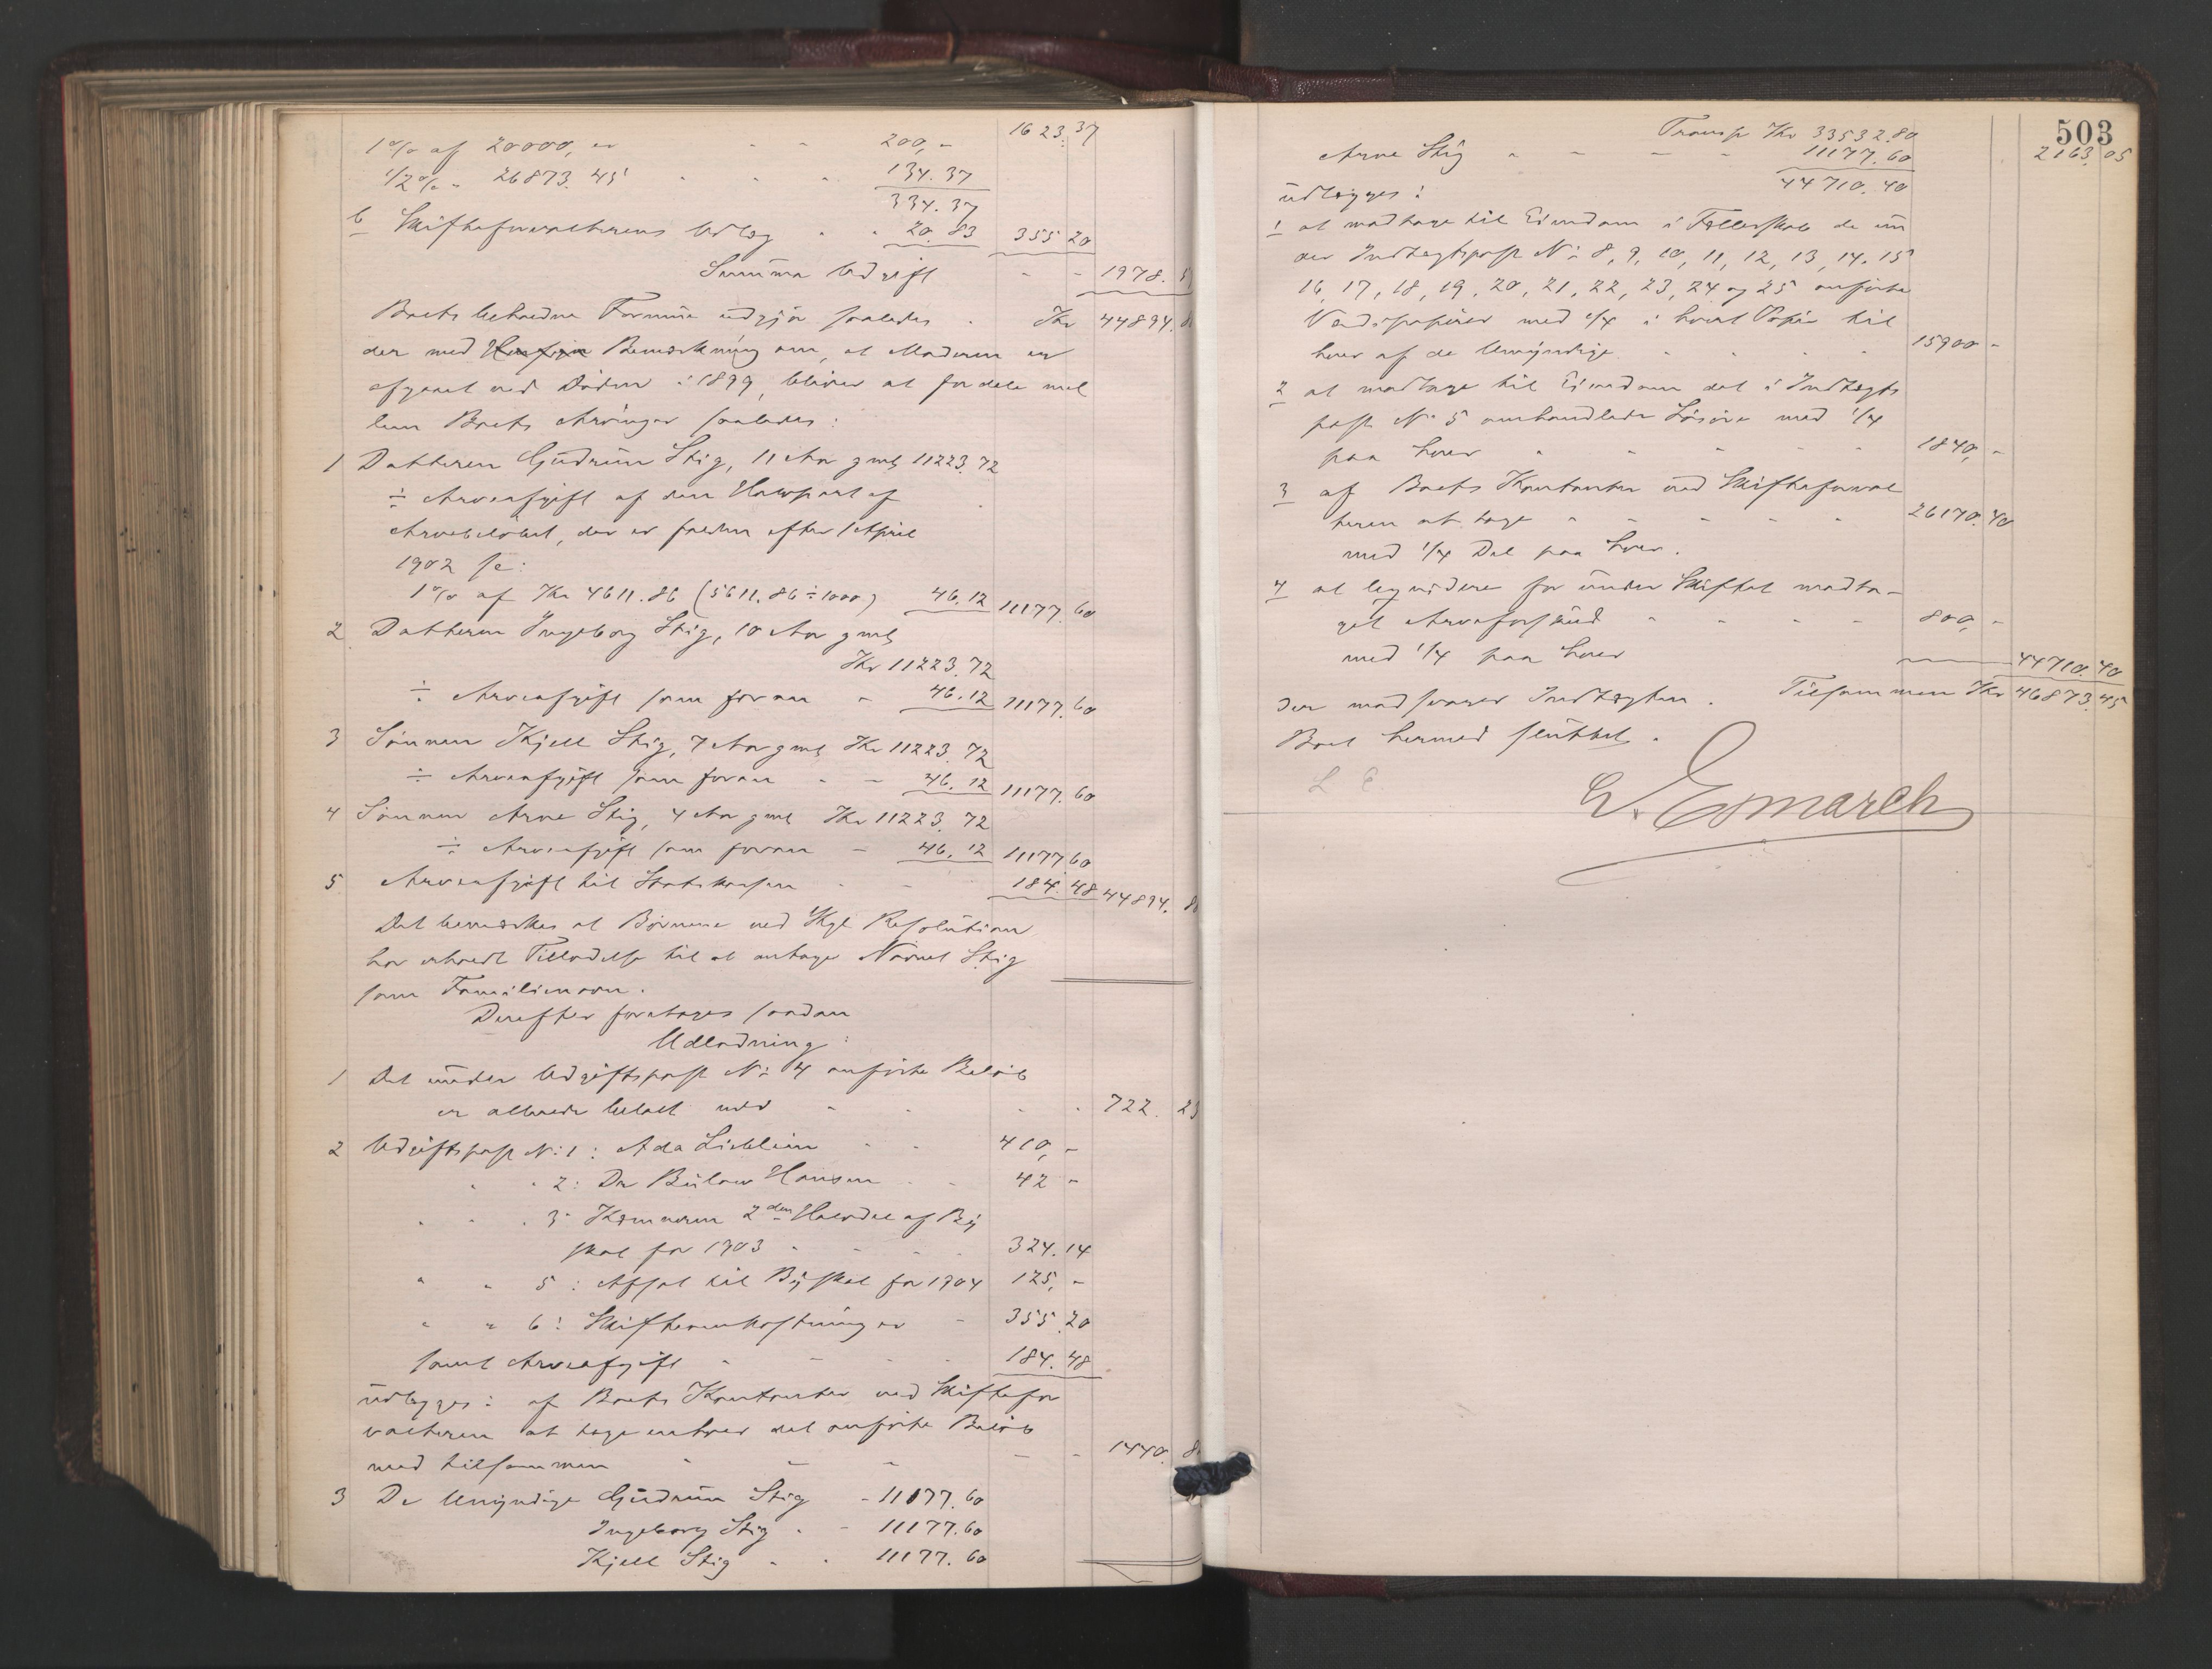 1623.37
1% af 20000, er - - 200, -
1/2% " 26873.45 - - - 134.37
334.37
b Skifteforvalterens Udlæg - - 20.83 355 20
Summa Udgift - - 1978.5
Boets beholdne Formue udgjør saaledes . Kr 44894.8
der med Bemærkning om, at Moderen er
afgaaet ved Døden i 1899, bliver at fordele mel
lem Boets Arvinger saaledes:
1 Datteren Gudrun Stig, 11 Aar gml 11223.72
÷ Arveafgift af den Halvpart af
Arvebeløbet, der er falden efter 1 April
1902 sc:
1% af Kr 4611.86 (5611.86 ÷ 1000) 46.12 11177.60
2 Datteren Ingeborg Stig, 10 Aar gml
Kr 11223.72
÷ Arveafgift som foran - 46.12 11177.60
3 Sønnen Kjell Stig, 7 Aar gml Kr 11223.72
÷ Arveafgift som foran - - 46.12 11177.60
4 Sønnen Arne Stig, 4 Aar gml Kr 11223.72
÷ Arveafgift som foran - 46.12 11177 60
5 Arveafgift til Statskassen - - 184.48 44894.8
Det bemærkes at Børnene ved Kgl Resolution
har erholdt Tilladelse til at antage Navnet Stig
som Familienavn.
Derefter foretages saadan
Udlodning:
1 Det under Udgiftspost No 4 anførte Beløb
er allerede betalt med - - - - 722.25
2 Udgiftspost No 1: Ada Lieblein - - 410, -
" " 2: Dr Bülow Hansen - - 42 -
" " 3: Kemneren 2den Halvdel af By
skat for 1903 - - - - 324.14
" " 5: Afsat til Byskat for 1904 125, -
" " 6: Skifteomkostninger - 355.20
samt Arveafgift - - - - 184.48
udlægges: af Boets Kontanter ved Skiftefor
valteren at tage enhver det anførte Beløb
med tilsammen - - - - - 1440.8
3 De Umyndige Gudrun Stig - 11177.60
Ingeborg Stig - - 11177.60
Kjell Stig - - 11177.60
503
Transp Kr 33532.80 2163.05
Arne Stig - - - - 11177.60
44710.40
udlægges:
1 at modtage til Eiendom i Fællesskab de un
der Indtægtspost No 8, 9, 10, 11, 12, 13, 14, 15
16, 17, 18, 19, 20, 21, 22, 23, 24 og 25 anførte
Værdipapirer med 1/4 i hvert Papir til
hver af de Umyndige - - - - 15900 -
2 at modtage til Eiendom det i Indtægts
post No 5 omhandlede Løsøre med 1/4
paa hver - - - - - 1840, -
3 af Boets Kontanter ved Skifteforval
teren at tage - - - - - 26170.40
med 1/4 Del paa hver.
4 at liquidere for under Skiftet modta-
get Arveforskud - - - - 800, -
med 1/4 paa hver 44710.40
der modsvarer Indtægten. Tilsammen Kr 46873.45
Boet hermed sluttet.
L E
E. Esmarch